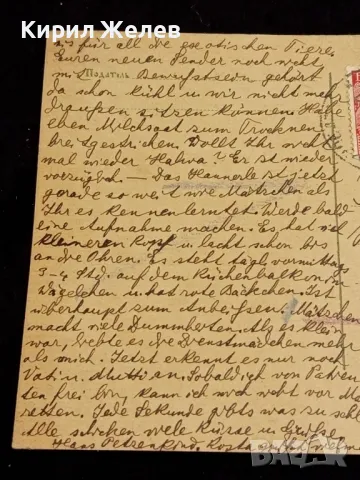 Кирил Желев
es für all die exotischen Tiere.
Euren neuen Sender noch nicht
Податель
mit Bewusstsein gehört
da schon kühl u. wir nicht mehr
draußen sitzen können. Habe
eben Milchsaat zum Trocknen
breitgestrichen. Wollt Ihr nicht
mal wieder Halwa? Er ist wieder
vorzüglich. — Das Hannerle ist jetzt
gerade so weit wie Mätzchen als
Ihr es kennenlerntet. Werde bald
eine Aufnahme machen. Es hat viel
kleineren Kopf u. lacht schon bis
an die Ohren. Es steht tägl. vormittags
3-4 Std. auf dem Küchenbalkon im
u. hat rote Bäckchen. Ist
überhaupt zum Anbeißen. Mätzchen
macht viele Dummheiten. Als es klein
war, liebte es die Dienstmädchen mehr
als mich. Jetzt erkennt es nur noch
Vati u. Mutti an. Sobald ich von
frei bin, kann ich mich nicht vor
retten. Jede Sekunde gibts was zu
Alle schicken viele Küsse u. Grüße
Hans
bazar.bg